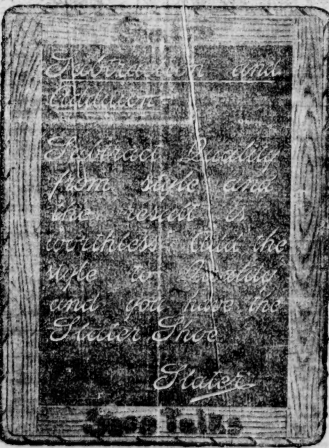 Subtraction and
Addition—
Subtract Quality
from style and
the result is
worthless. Add the
style to Quality
and you have the
Slater Shoe
Slater.
Shoe Talks